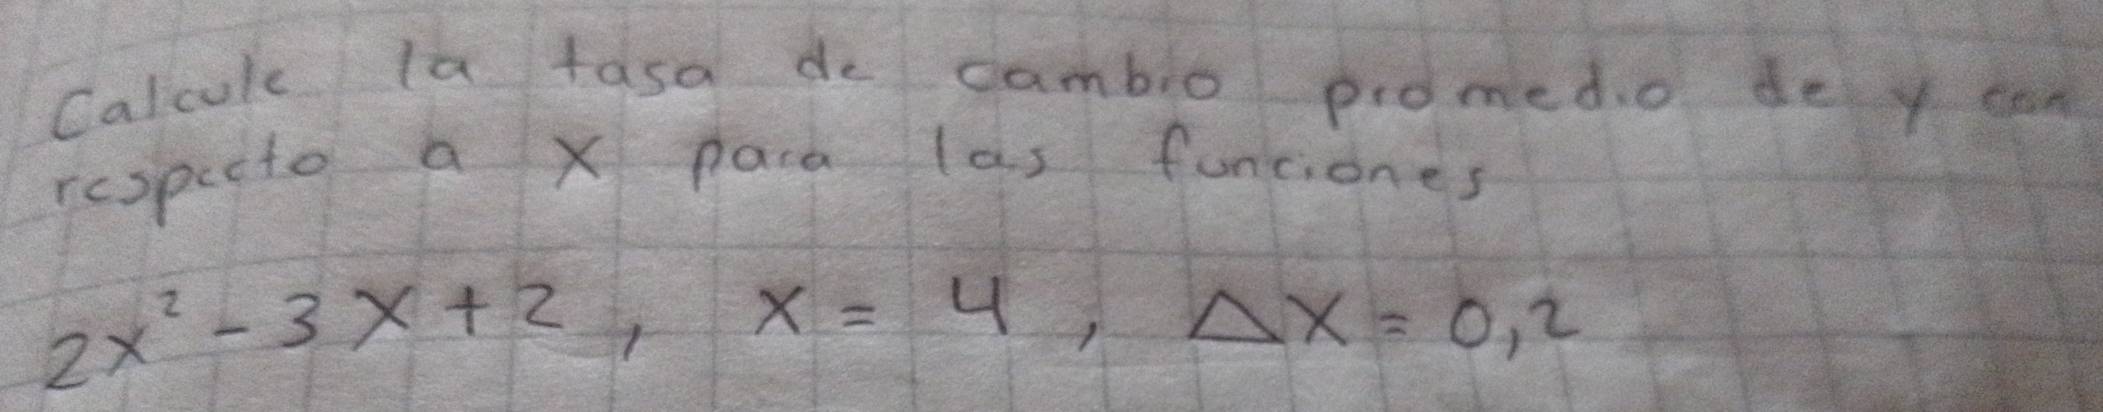 Calcule la tasa de cambio promedio de y con
respecto a x para las funciones
2x² - 3x + 2, x = 4, Δx = 0,2